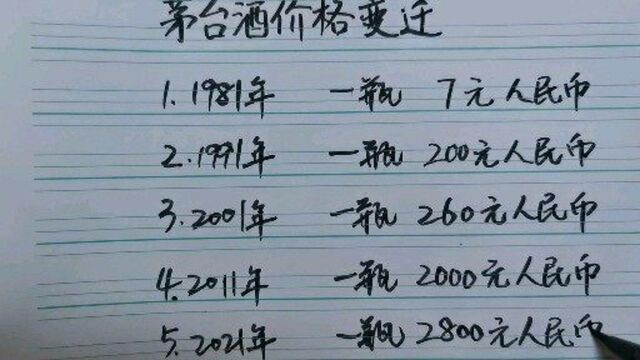 茅台酒价格变迁
1.1981年 一瓶 7元人民币
2.1991年 一瓶 200元人民币
3.2001年 一瓶 260元人民币
4.2011年 一瓶 2000元人民币
5.2021年 一瓶 2800元人民币